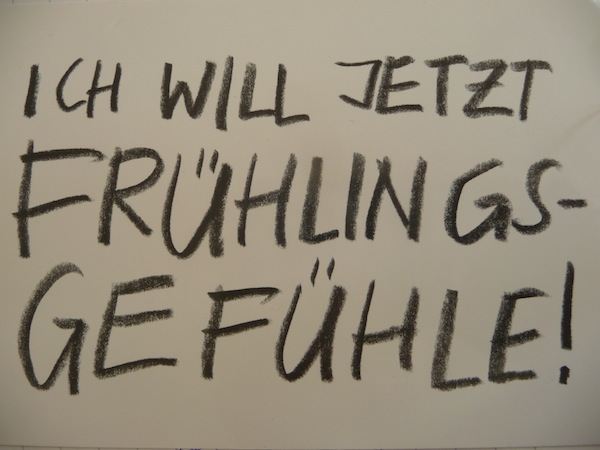 ICH WILL JETZT
FRÜHLINGS-
GEFÜHLE!